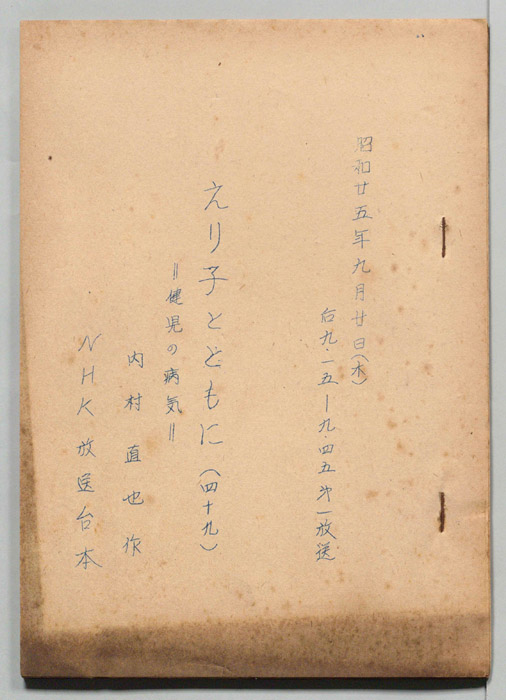 昭和廿五年九月廿日(木)
后九・一五―九・四五 才一放送
えり子とともに(四十九)
=健児の病気=
内村直也 作
NHK放送台本